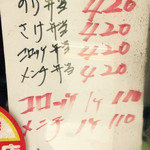 のり弁当 420
さけ弁当 420
コロッケ弁当 420
メンチ弁当 420
コロッケ 1ケ 110
メンチ 1ケ 110
店